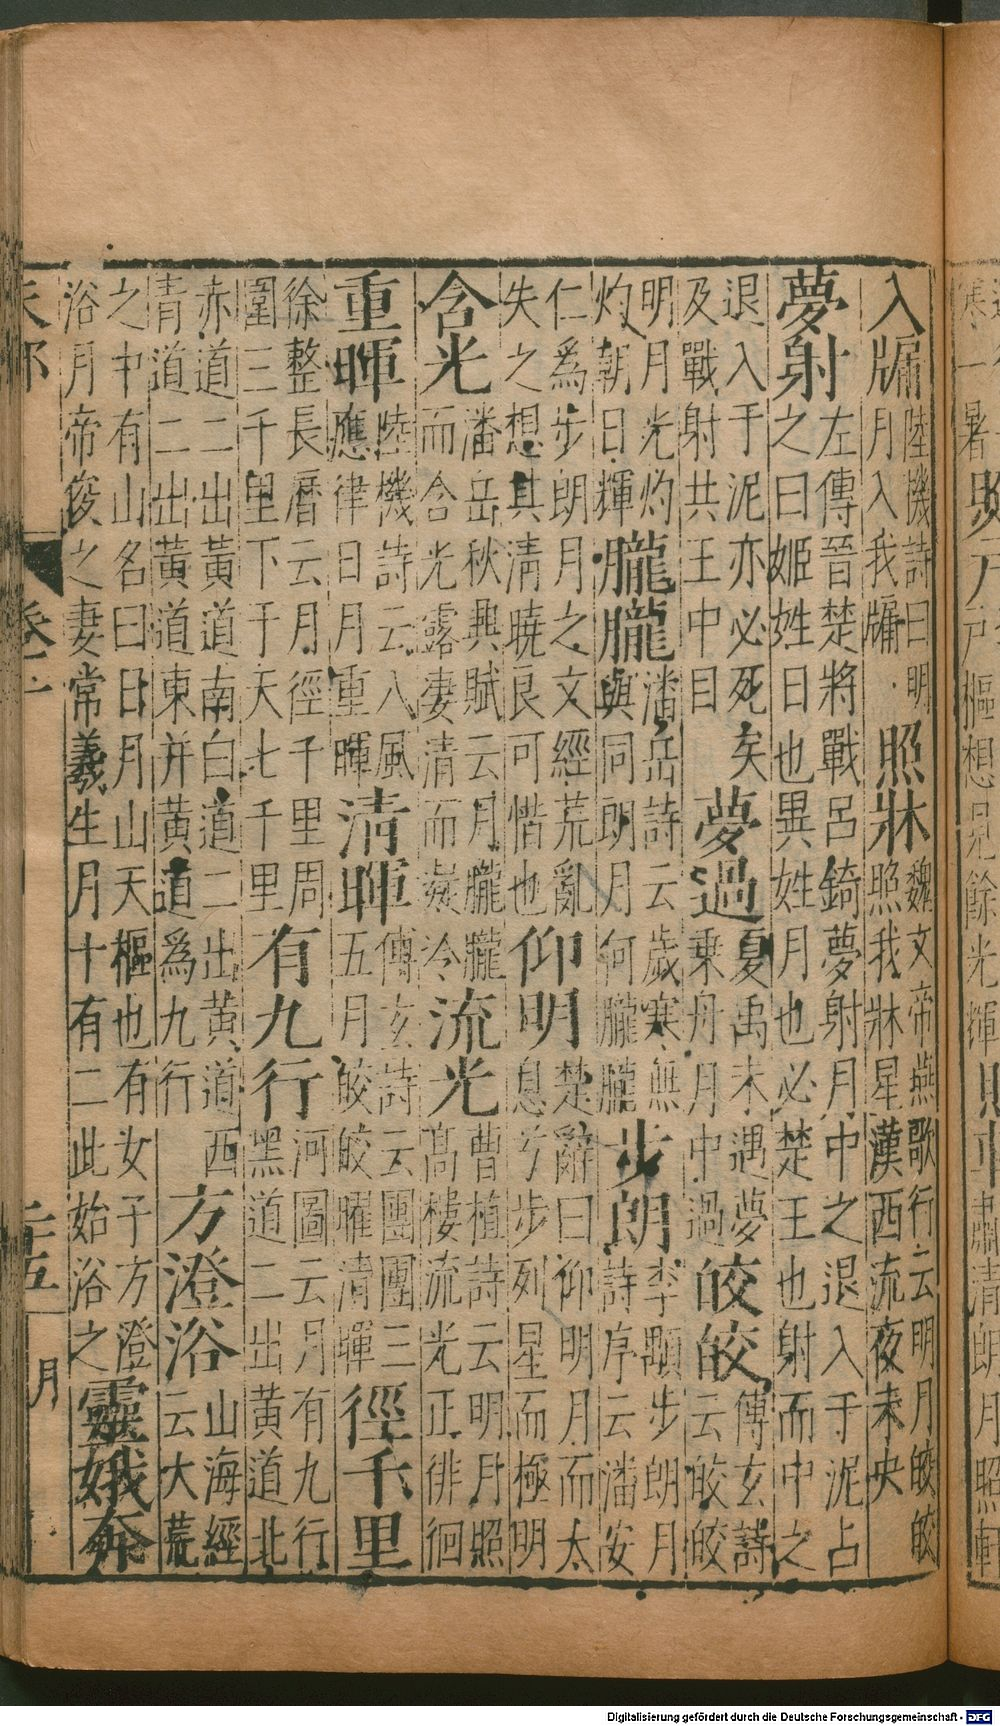 入牖陸機詩曰明月入我牖照牀魏文帝燕歌行云明月皎皎照我牀星漢西流夜未央
夢射左傳晉楚將戰呂錡夢射月中之退入于泥占之曰姬姓日也異姓月也必楚王也射而中之
退入于泥亦必死矣及戰射共王中目夢過夏禹未遇夢乘舟月中過皎皎傅玄詩云皎皎
明月光灼灼朝日輝朧朧潘岳詩云歲寒無與同朗月何朧朧步朗李顒步朗月詩序云潘安
仁爲步朗月之文經荒亂失之想其清曉良可惜也仰明楚辭曰仰明月而太息兮步列星而極明
含光潘岳秋興賦云月朧朧而含光露凄清而凝冷流光曹植詩云明月照高樓流光正徘徊
重暉陸機詩云八風應律日月重暉清暉傅玄詩云團團三五月皎皎曜清暉徑千里
徐整長曆云月徑千里周圍三千里下于天七千里有九行河圖云月有九行黑道二出黃道北
赤道二出黃道南白道二出黃道西青道二出黃道東并黃道爲九行方澄浴山海經云大荒
之中有山名曰日月山天樞也有女子方澄浴月帝俊之妻常羲生月十有二此始浴之靈娥奔
天部 卷一 月
Digitalisierung gefördert durch die Deutsche Forschungsgemeinschaft - DFG